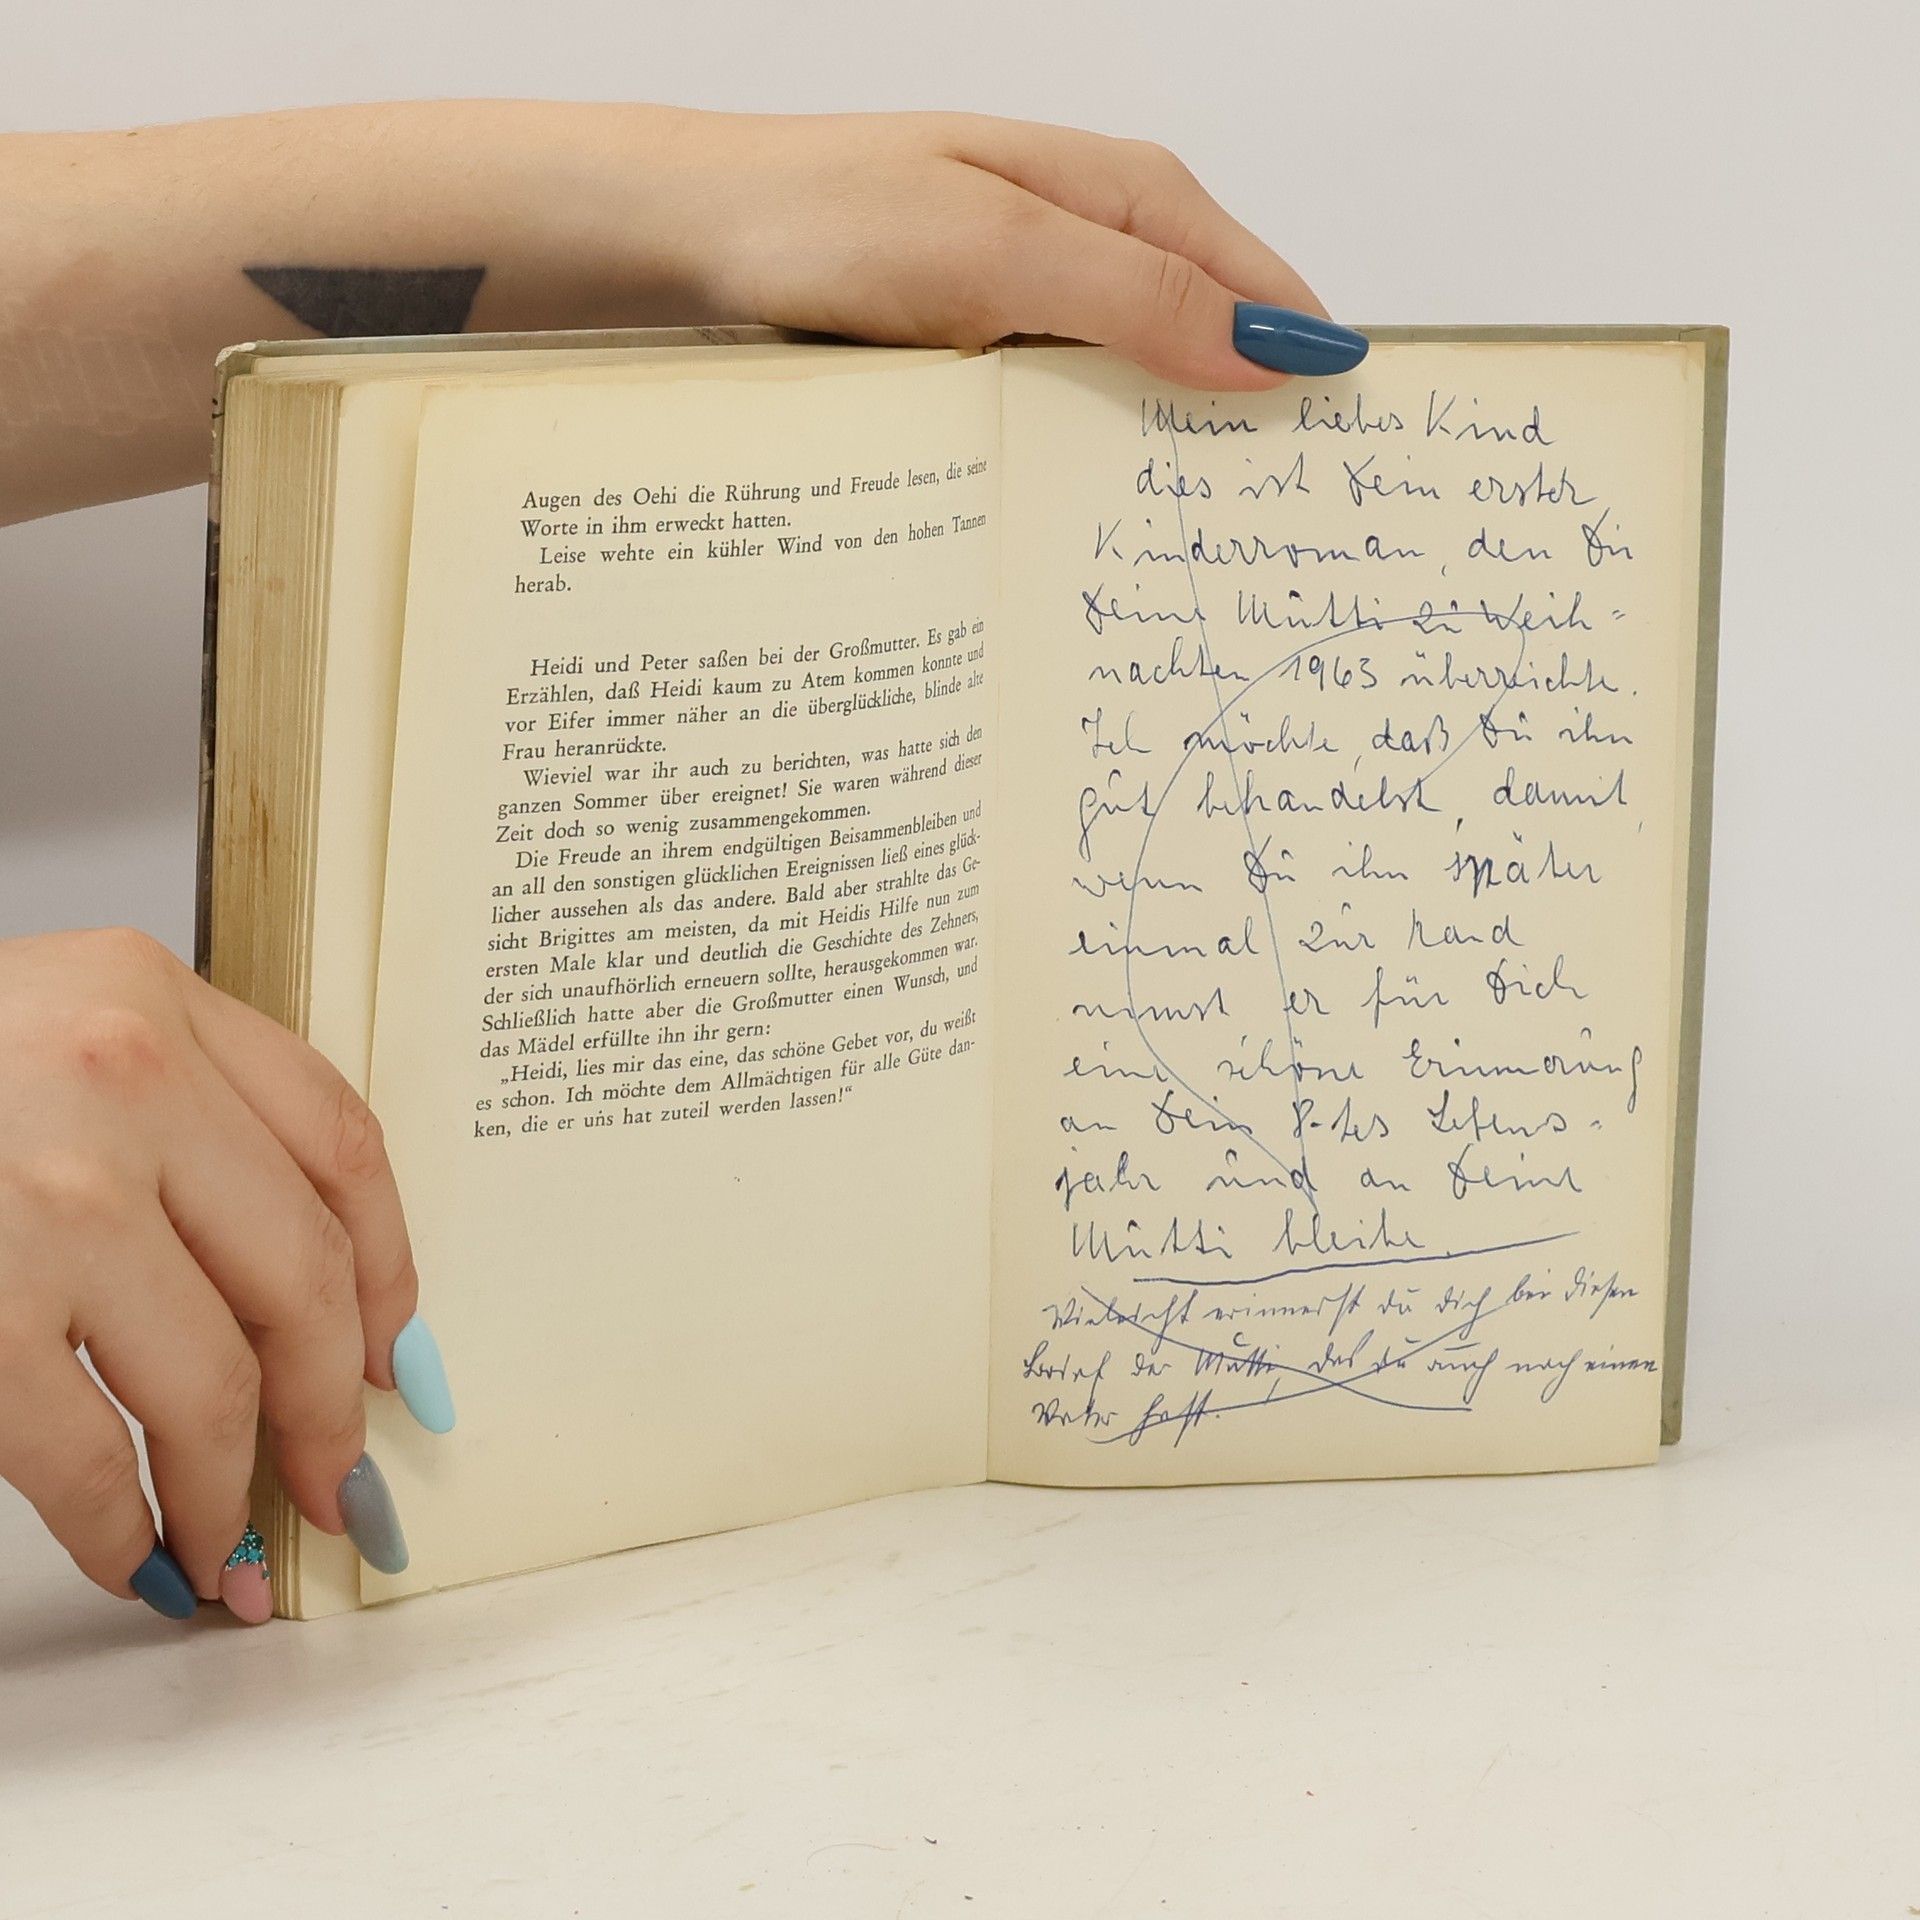 Augen des Oehi die Rührung und Freude lesen, die seine
Worte in ihm erweckt hatten.
Leise wehte ein kühler Wind von den hohen Tannen
herab.
Heidi und Peter saßen bei der Großmutter. Es gab ein
Erzählen, daß Heidi kaum zu Atem kommen konnte und
vor Eifer immer näher an die überglückliche, blinde alte
Frau heranrückte.
Wieviel war ihr auch zu berichten, was hatte sich den
ganzen Sommer über ereignet! Sie waren während dieser
Zeit doch so wenig zusammengekommen.
Die Freude an ihrem endgültigen Beisammenbleiben und
an all den sonstigen glücklichen Ereignissen ließ eines glück-
licher aussehen als das andere. Bald aber strahlte das Ge-
sicht Brigittes am meisten, da mit Heidis Hilfe nun zum
ersten Male klar und deutlich die Geschichte des Zehners,
der sich unaufhörlich erneuern sollte, herausgekommen war.
Schließlich hatte aber die Großmutter einen Wunsch, und
das Mädel erfüllte ihn ihr gern:
„Heidi, lies mir das eine, das schöne Gebet vor, du weißt
es schon. Ich möchte dem Allmächtigen für alle Güte dan-
ken, die er uns hat zuteil werden lassen!“
Mein liebes Kind
dies ist Dein erster
Kinderroman, den Dir
Deine Mutti zu Weih=
nachten 1963 überreichte.
Ich möchte, daß Du ihn
gut behandelst, damit,
wenn Du ihn später
einmal zur Hand
nimst er für Dich
eine schöne Erinnerung
an Dein 8-tes Lebens=
jahr und an Deine
Mutti bleibe.
Vieleicht erinnerst du dich bei diesen
Brief der Mutti, das du auch noch einen
Vater hast.